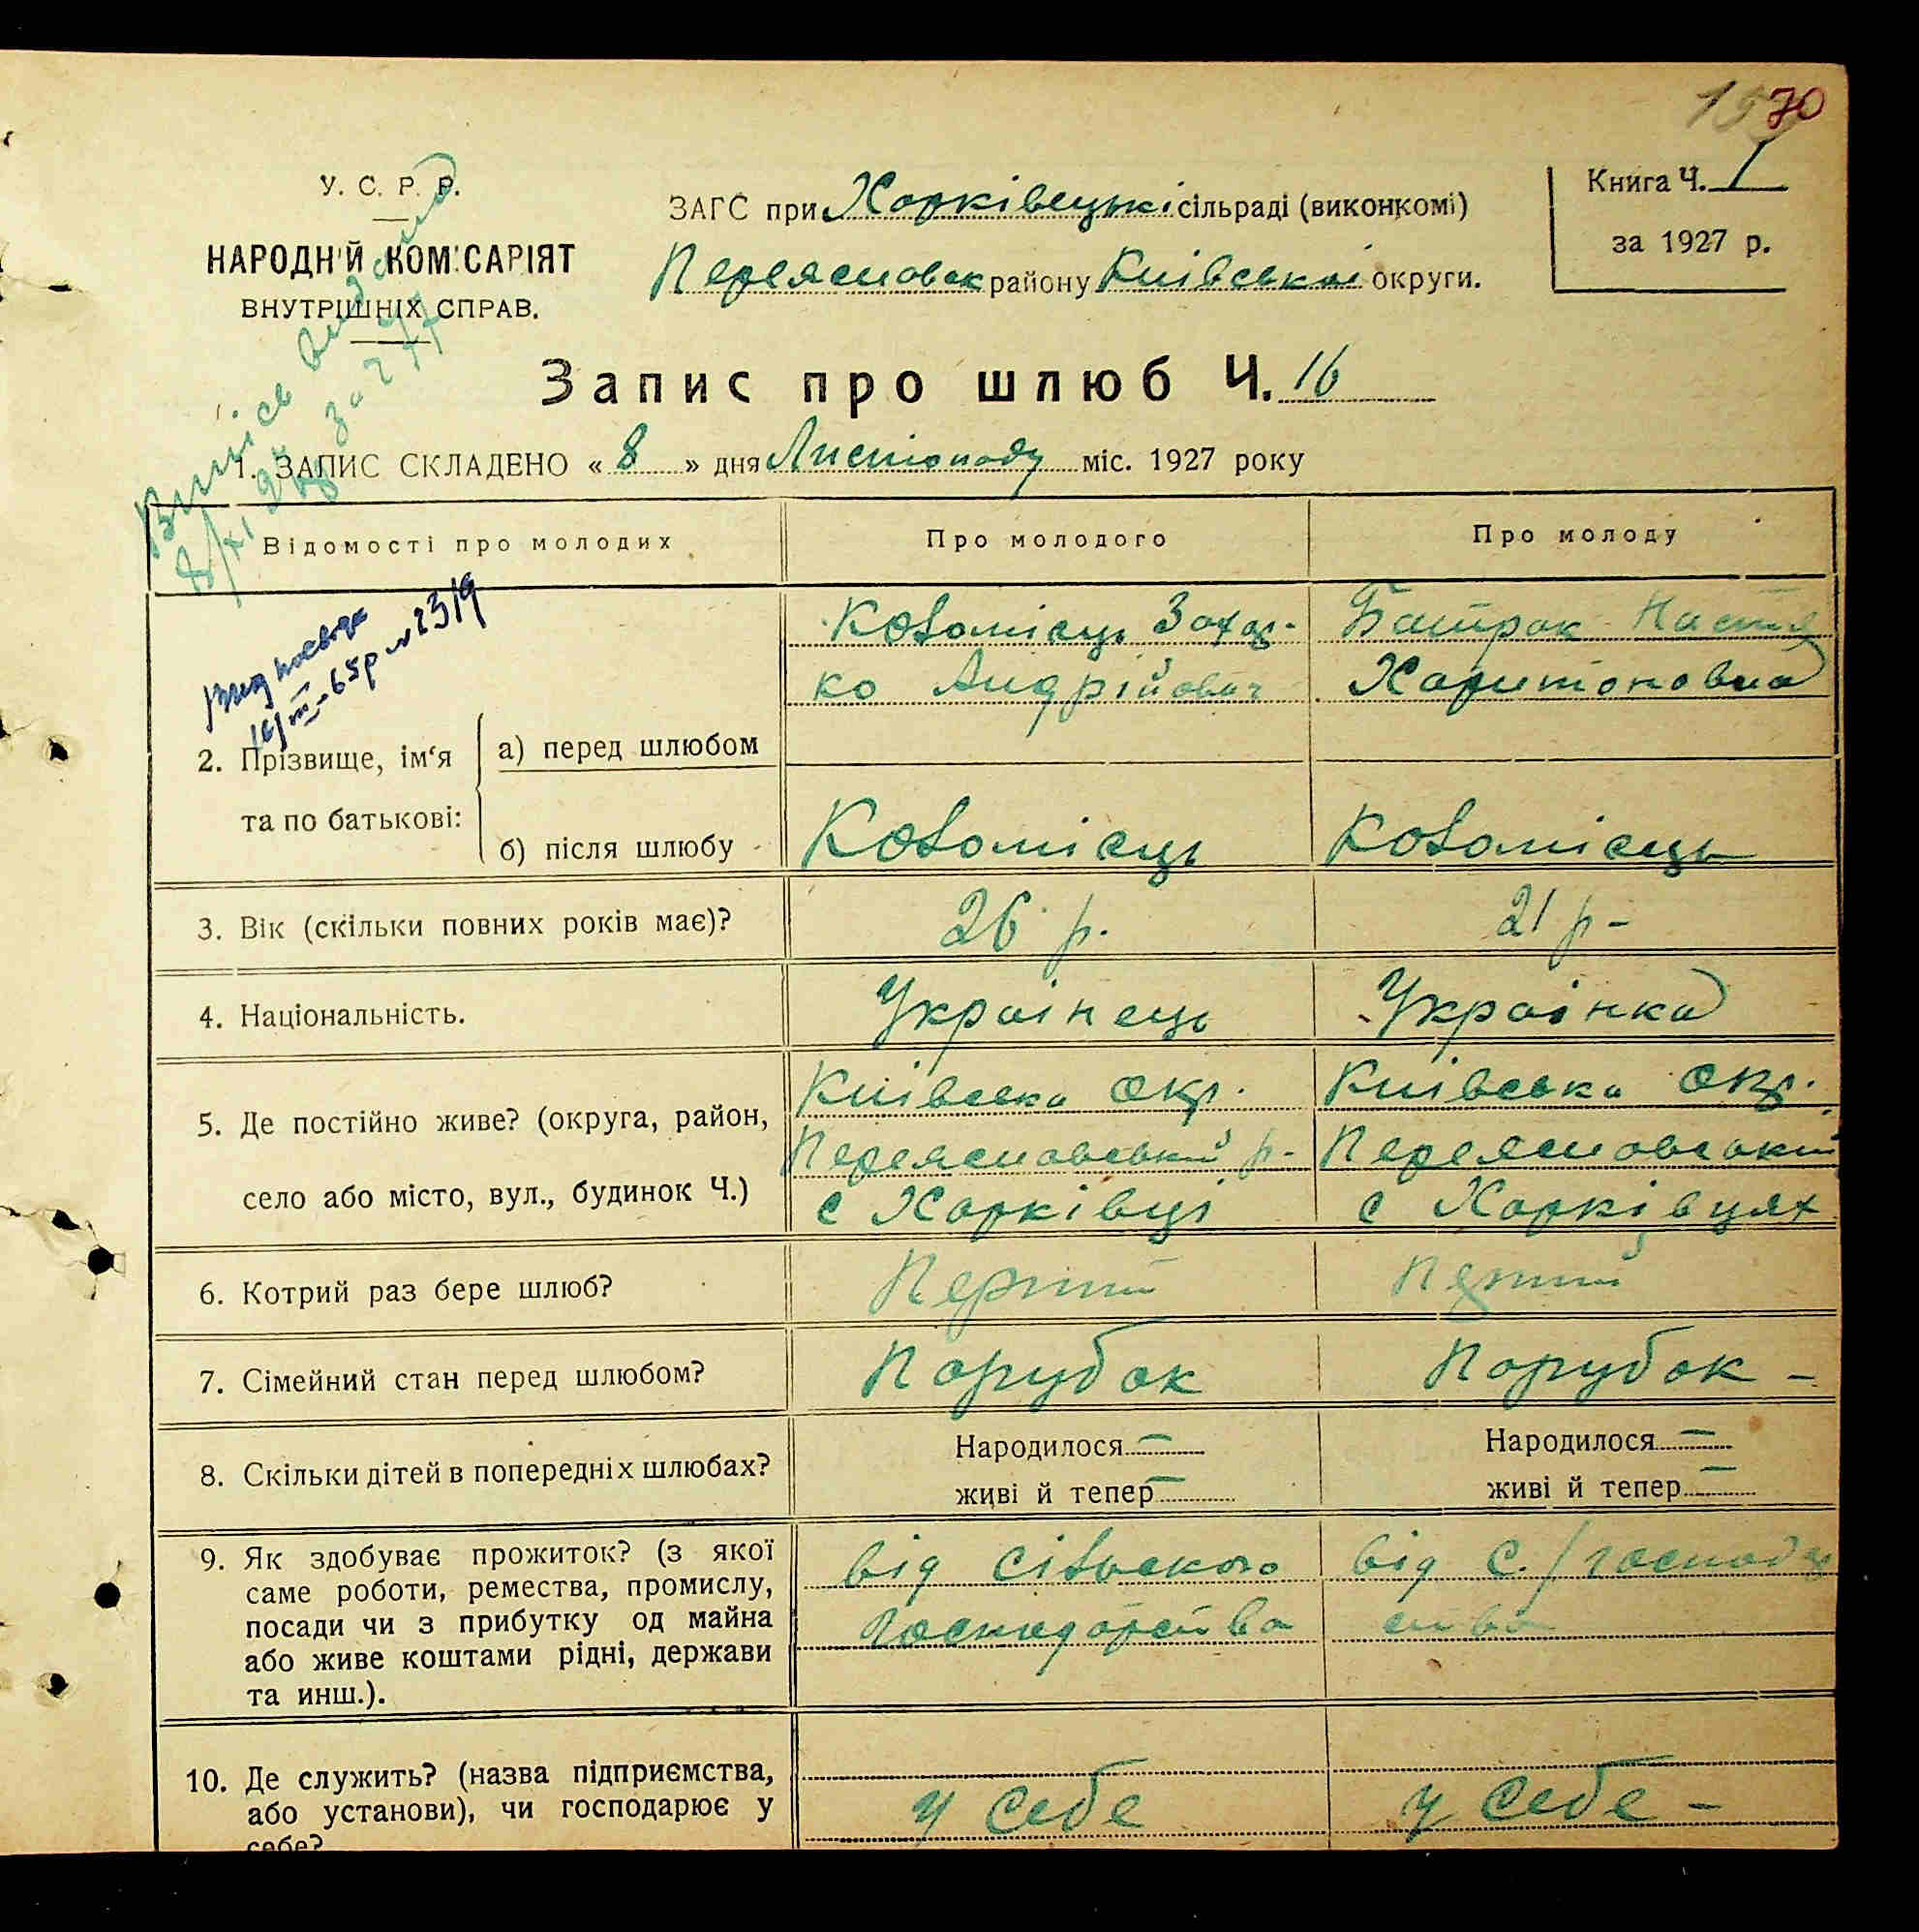 70
У. С. Р. Р.
НАРОДНІЙ КОМІСАРІЯТ
ВНУТРІШНІХ СПРАВ.
ЗАГС при Харківецькі сільраді (виконкомі)
Переяславськ району Київської округи.
Книга Ч. 1
за 1927 р.
Запис про шлюб Ч. 16
1. ЗАПИС СКЛАДЕНО « 8 » дня Листопаду міс. 1927 року
Відомості про молодих
Про молодого
Про молоду
2. Прізвище, ім‘я
та по батькові:
а) перед шлюбом
Коломієць Захар-
ко Андрійович
Батрак Настя
Харитоновна
б) після шлюбу
Коломієць
Коломієць
3. Вік (скільки повних років має)?
26 р.
21 р -
4. Національність.
Українець
Українка
5. Де постійно живе? (округа, район,
село або місто, вул., будинок Ч.)
Київська окр.
Переяславський р-
с Харківці
Київська окр.
Переяславський
с Харківцях
6. Котрий раз бере шлюб?
Перший
Перший
7. Сімейний стан перед шлюбом?
Парубок
Парубок -
8. Скільки дітей в попередніх шлюбах?
Народилося —
живі й тепер —
Народилося —
живі й тепер —
9. Як здобуває прожиток? (з якої
саме роботи, ремества, промислу,
посади чи з прибутку од майна
або живе коштами рідні, держави
та инш.).
від сільского
господарства
від с./господар
ства
10. Де служить? (назва підприємства,
або установи), чи господарює у
себе?
у себе
у себе -